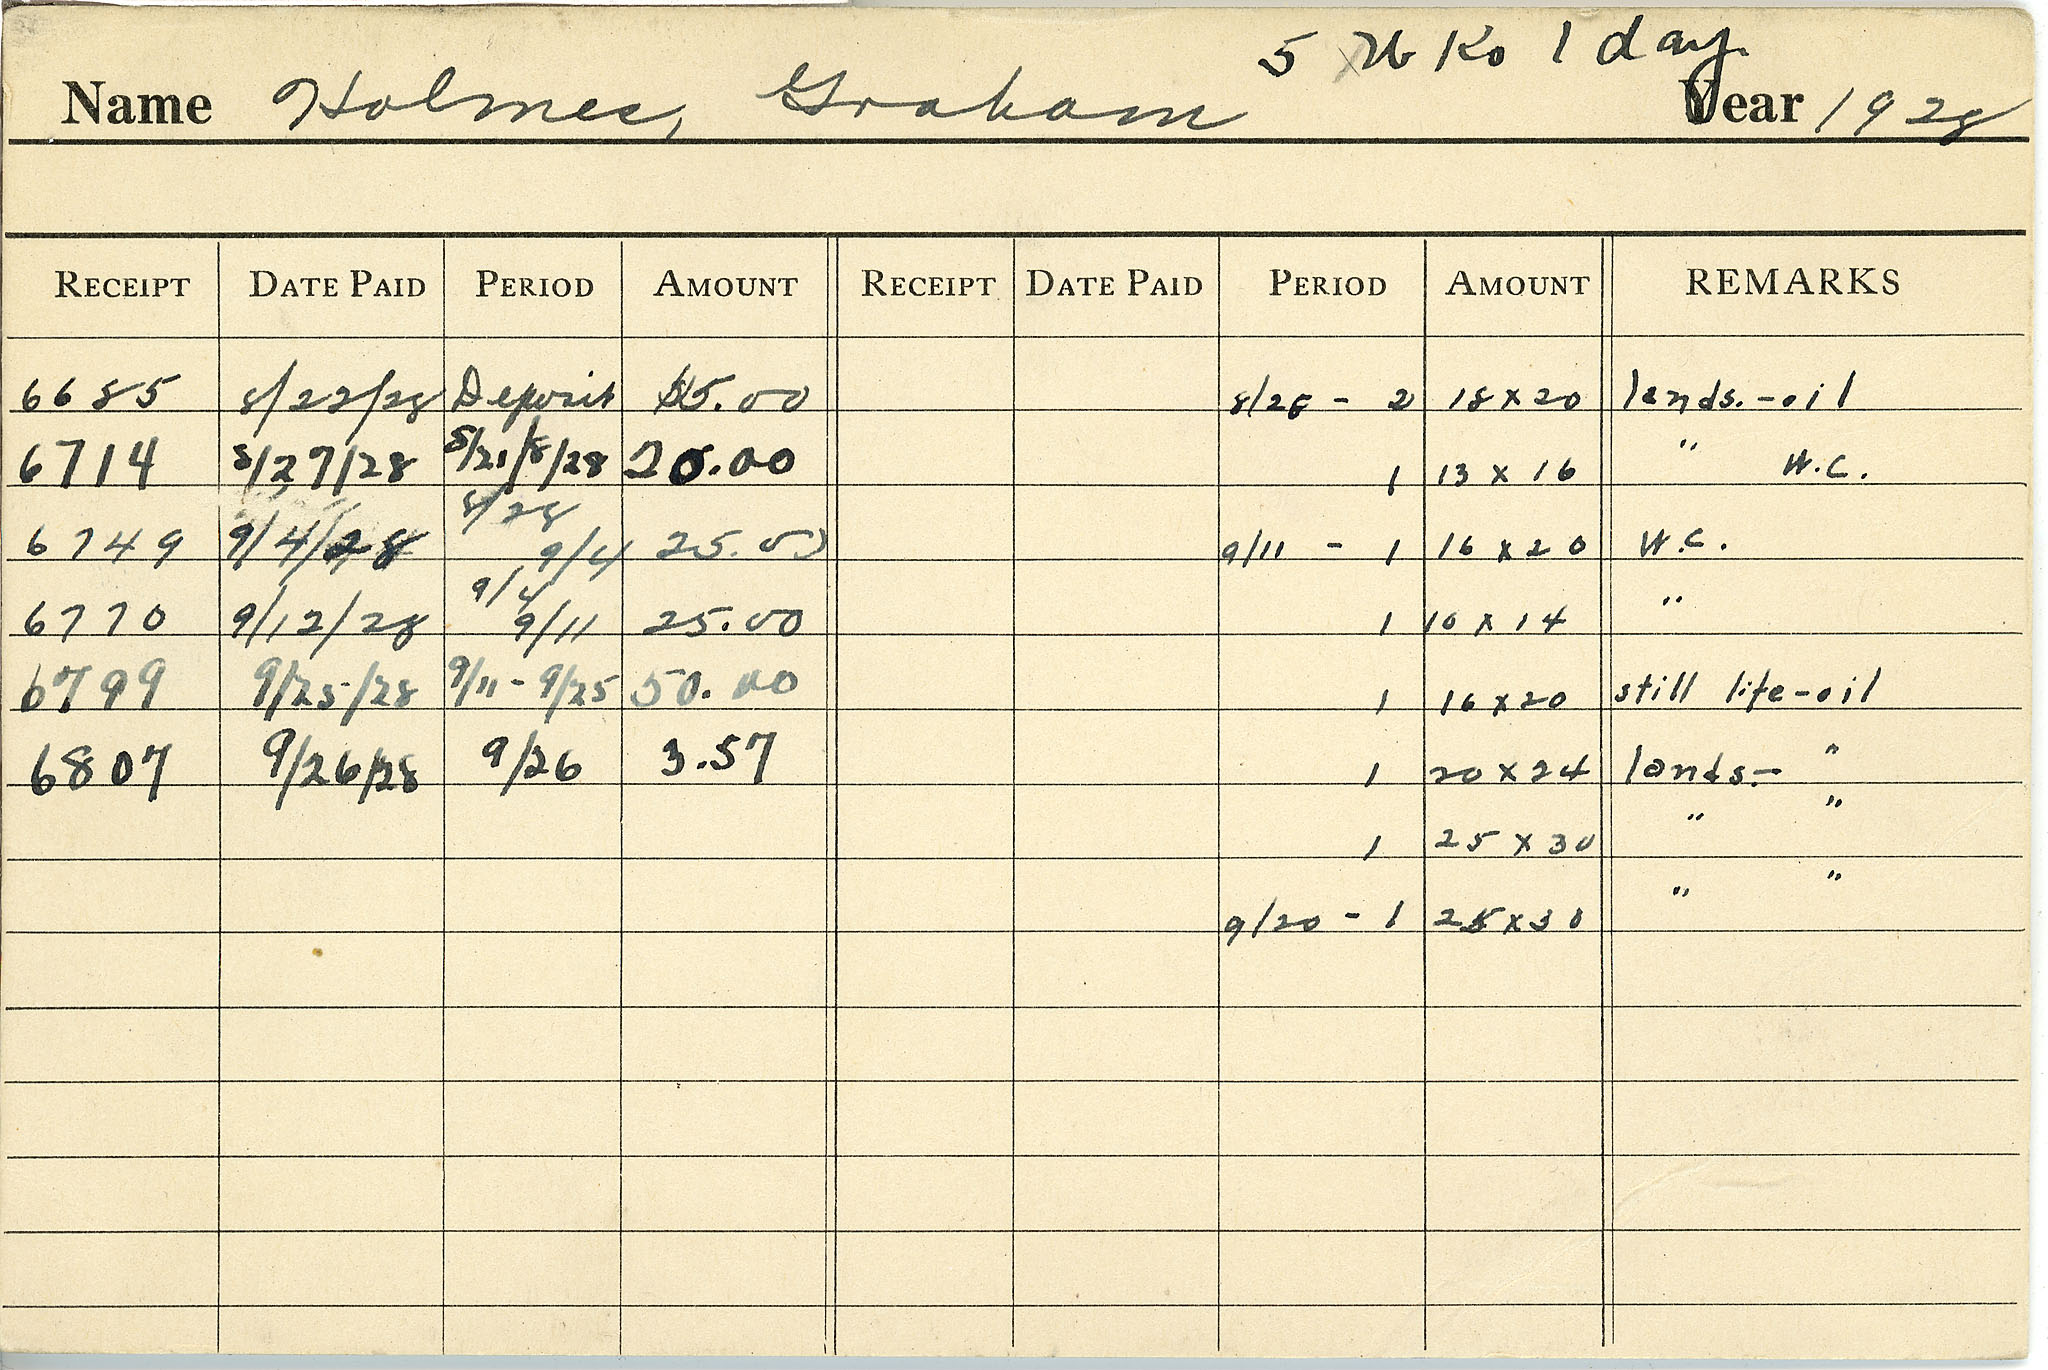 5 Wks 1 day
Name Holmes, Graham Year 1928
RECEIPT DATE PAID PERIOD AMOUNT RECEIPT DATE PAID PERIOD AMOUNT REMARKS
6685 8/22/28 Deposit $5.00 8/28 - 2 18 x 20 lands. - oil
6714 8/27/28 8/21/8/28 20.00 1 13 x 16 " W.C.
6749 9/4/28 8/28 9/4 25.00 9/11 - 1 16 x 20 W.C.
6770 9/12/28 9/4 9/11 25.00 1 10 x 14 "
6799 9/25/28 9/11 - 9/25 50.00 1 16 x 20 still life - oil
6807 9/26/28 9/26 3.57 1 20 x 24 lands. - "
1 25 x 30 " "
9/20 - 1 25 x 30 " "